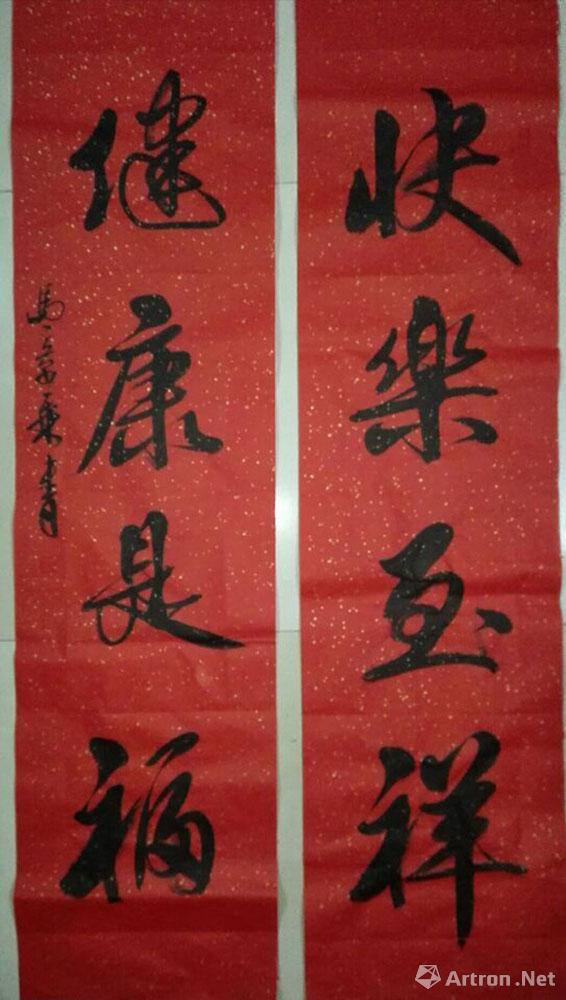 快樂至祥
健康是福
Artron.Net